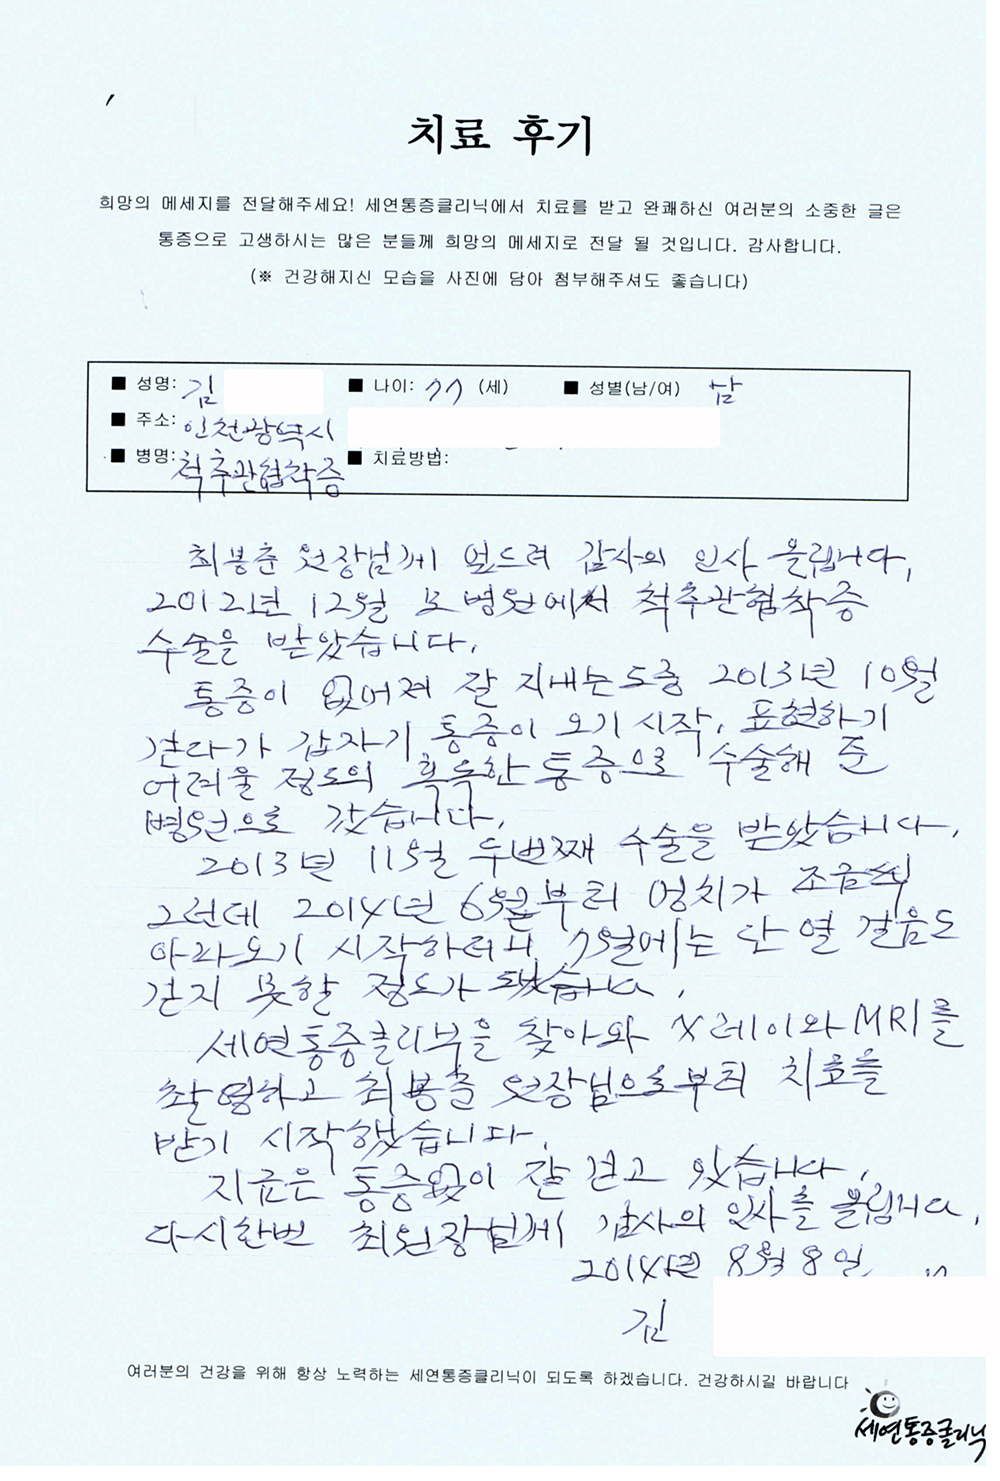 치료 후기
희망의 메세지를 전달해주세요! 세연통증클리닉에서 치료를 받고 완쾌하신 여러분의 소중한 글은
통증으로 고생하시는 많은 분들께 희망의 메세지로 전달 될 것입니다. 감사합니다.
(※ 건강해지신 모습을 사진에 담아 첨부해주셔도 좋습니다)
■ 성명: 김 ■ 나이: 77 (세) ■ 성별(남/여) 남
■ 주소: 인천광역시
■ 병명: 척추관협착증 ■ 치료방법:
최봉춘 원장님께 엎드려 감사의 인사 올립니다,
2012년 12월 모 병원에서 척추관협착증
수술을 받았습니다.
통증이 없어져 잘 지내는 도중 2013년 10월
걷다가 갑자기 통증이 오기 시작, 표현하기
어려울 정도의 혹독한 통증으로 수술해 준
병원으로 갔습니다,
2013년 11월 두번째 수술을 받았습니다,
그런데 2014년 6월부터 엉치가 조금씩
아파오기 시작하더니 7월에는 단 열 걸음도
걷지 못할 정도가 됐습니다,
세연통증클리닉을 찾아와 X레이와 MRI를
촬영하고 최봉춘 원장님으로부터 치료를
받기 시작했습니다.
지금은 통증없이 잘 걷고 있습니다,
다시한번 최원장님께 감사의 인사를 올립니다,
2014년 8월 8일
김
여러분의 건강을 위해 항상 노력하는 세연통증클리닉이 되도록 하겠습니다. 건강하시길 바랍니다
세연통증클리닉